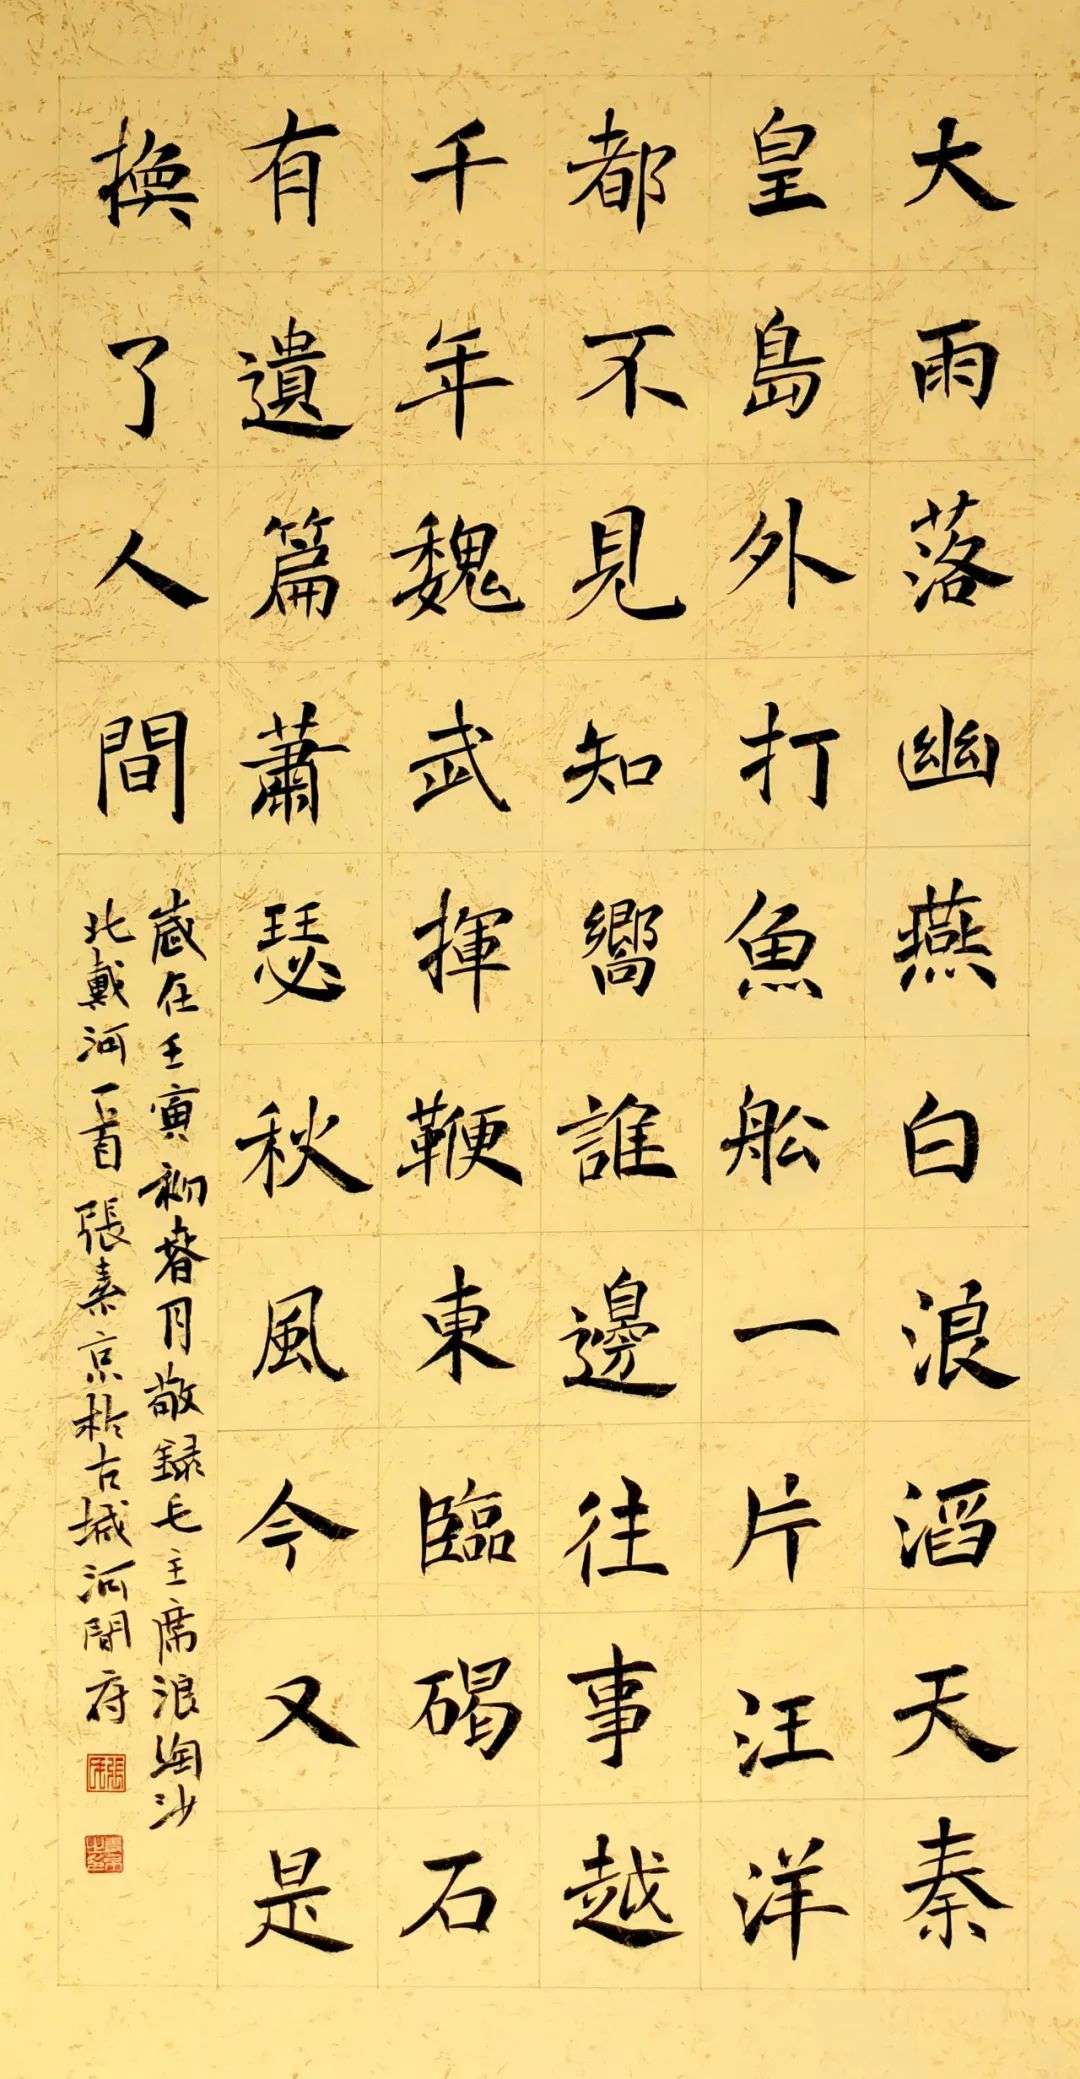 大雨落幽燕白浪滔天秦
皇島外打魚舩一片汪洋
都不見知嚮誰邊往事越
千年魏武揮鞭東臨碣石
有遺篇蕭瑟秋風今又是
換了人間
歲在壬寅初春月敬録毛主席浪淘沙
北戴河一首張素京於古城河間府